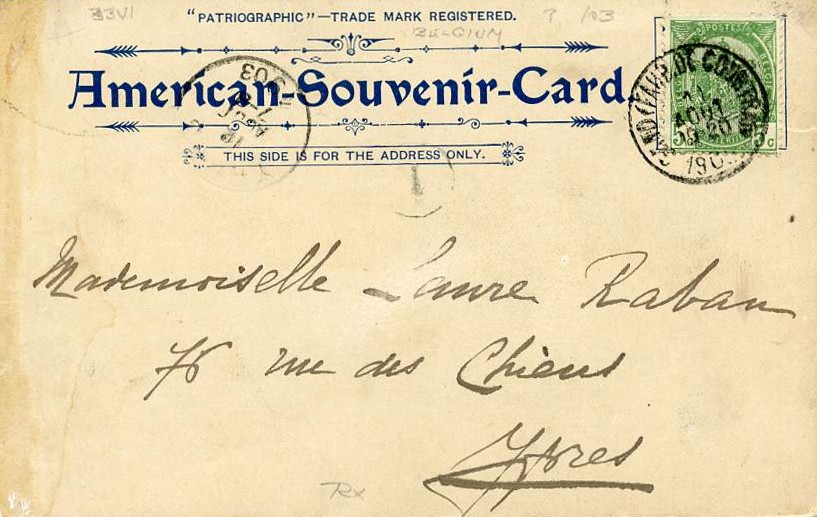 33VI "PATRIOGRAPHIC"—TRADE MARK REGISTERED. ? /03
BELGIUM
American-Souvenir-Card.
THIS SIDE IS FOR THE ADDRESS ONLY.
POSTES
AOUT
190
03
1
Mademoiselle Laure Raban
76 rue des Chiens
Ypres
Rx